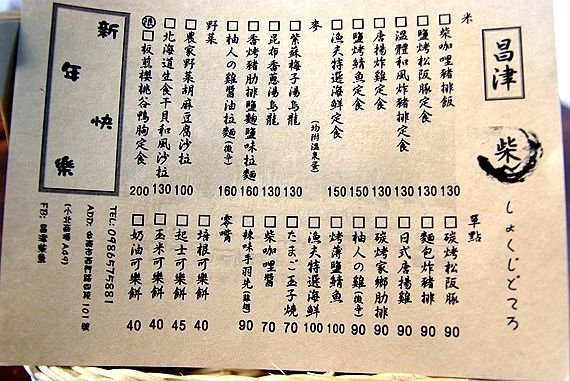 昌津
柴
しょくじどころ
米
□柴咖哩豬排飯 130
□鹽烤松阪豚定食 130
□溫體和風炸豬排定食 130
□唐揚炸雞定食 130
□鹽烤鯖魚定食 150
□漁夫特選海鮮定食 150
麥 (均附溫泉蛋)
□紫蘇梅子湯烏龍 130
□昆布香蔥湯烏龍 130
□香烤豬肋排鹽麴鹽味拉麵 160
□柚人の雞醬油拉麵(微辛) 160
野菜
□農家野菜胡麻豆腐沙拉 100
□北海道生食干貝和風沙拉 130
□板煎櫻桃谷鴨胸定食 200
新年快樂
單點
□碳烤松阪豚 90
□麵包炸豬排 90
□日式唐揚雞 90
□碳烤家鄉肋排 90
□柚人の雞(微辛) 90
□烤薄鹽鯖魚 100
□漁夫特選海鮮 100
□たまご玉子燒 70
□柴咖哩醬 70
□辣味手羽先(雞翅) 90
零嘴
□培根可樂餅 40
□起士可樂餅 45
□玉米可樂餅 40
□奶油可樂餅 40
TEL: 0986575881
(小北商場 A49)